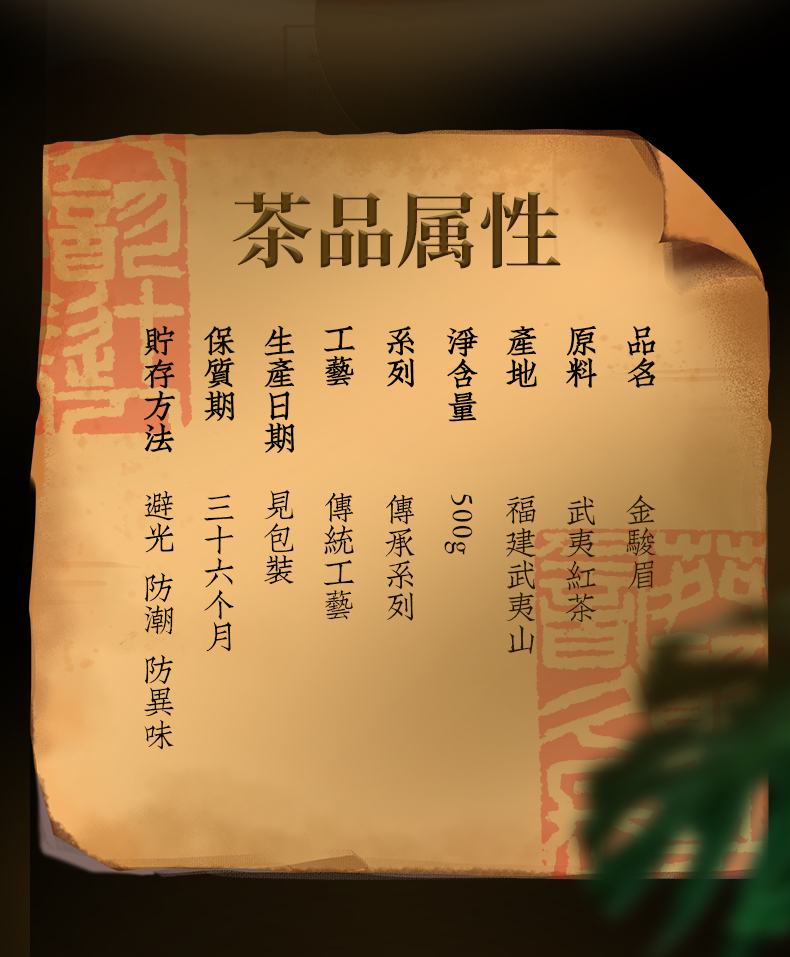 茶品属性
品名 金駿眉
原料 武夷紅茶
產地 福建武夷山
淨含量 500g
系列 傳承系列
工藝 傳統工藝
生產日期 見包裝
保質期 三十六个月
貯存方法 避光 防潮 防異味